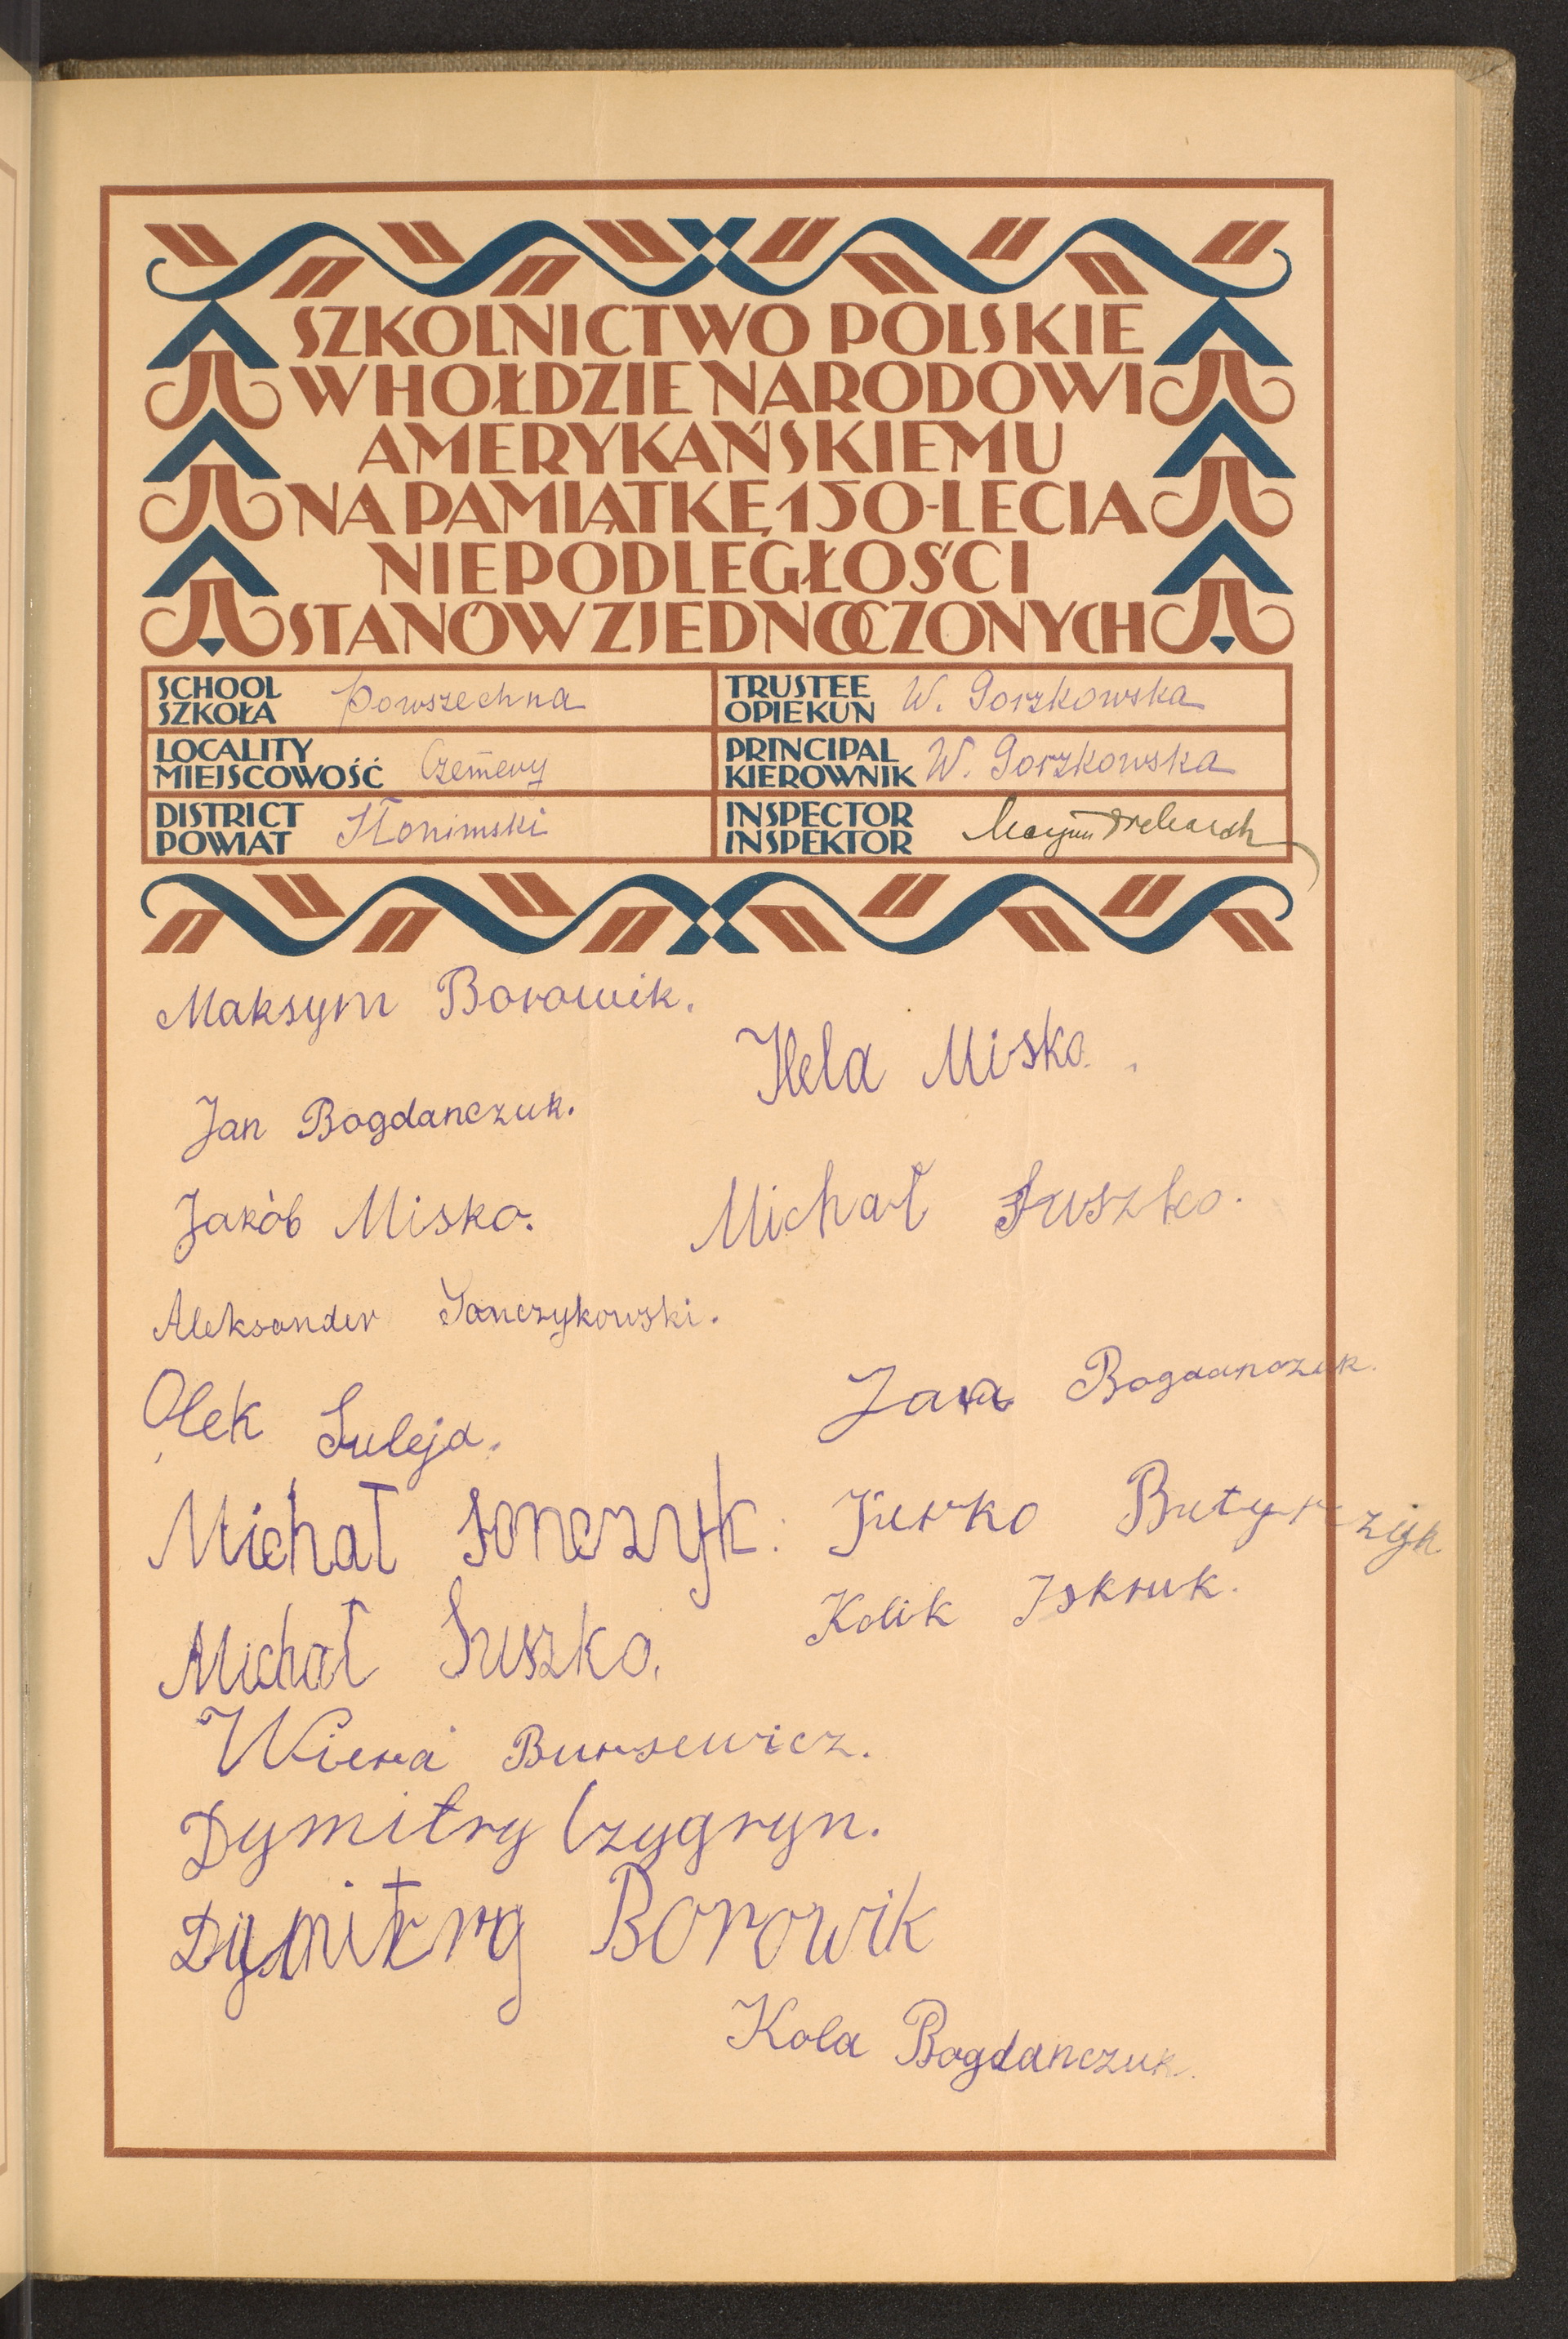 SZKOLNICTWO POLSKIE
W HOŁDZIE NARODOWI
AMERYKAŃSKIEMU
NA PAMIĄTKĘ 150-LECIA
NIEPODLEGŁOŚCI
STANÓW ZJEDNOCZONYCH
SCHOOL
SZKOŁA
Powszechna
TRUSTEE
OPIEKUN
W. Gorzkowska
LOCALITY
MIEJSCOWOŚĆ
Czemery
PRINCIPAL
KIEROWNIK
W. Gorzkowska
DISTRICT
POWIAT
Słonimski
INSPECTOR
INSPEKTOR
Maksym Borowik.
Hela Misko.
Jan Bogdanczuk.
Jakób Misko.
Michał Suszko.
Aleksander Janczykowski.
Olek Suleja.
Bogdanczuk.
Michał Jonczyk.
Jurko Butyrczyk
Michał Suszko.
Kolik Iskruk.
Wiera Bursewicz.
Dymitry Czygryn.
Dymitry Borowik
Kola Bogdanczuk.